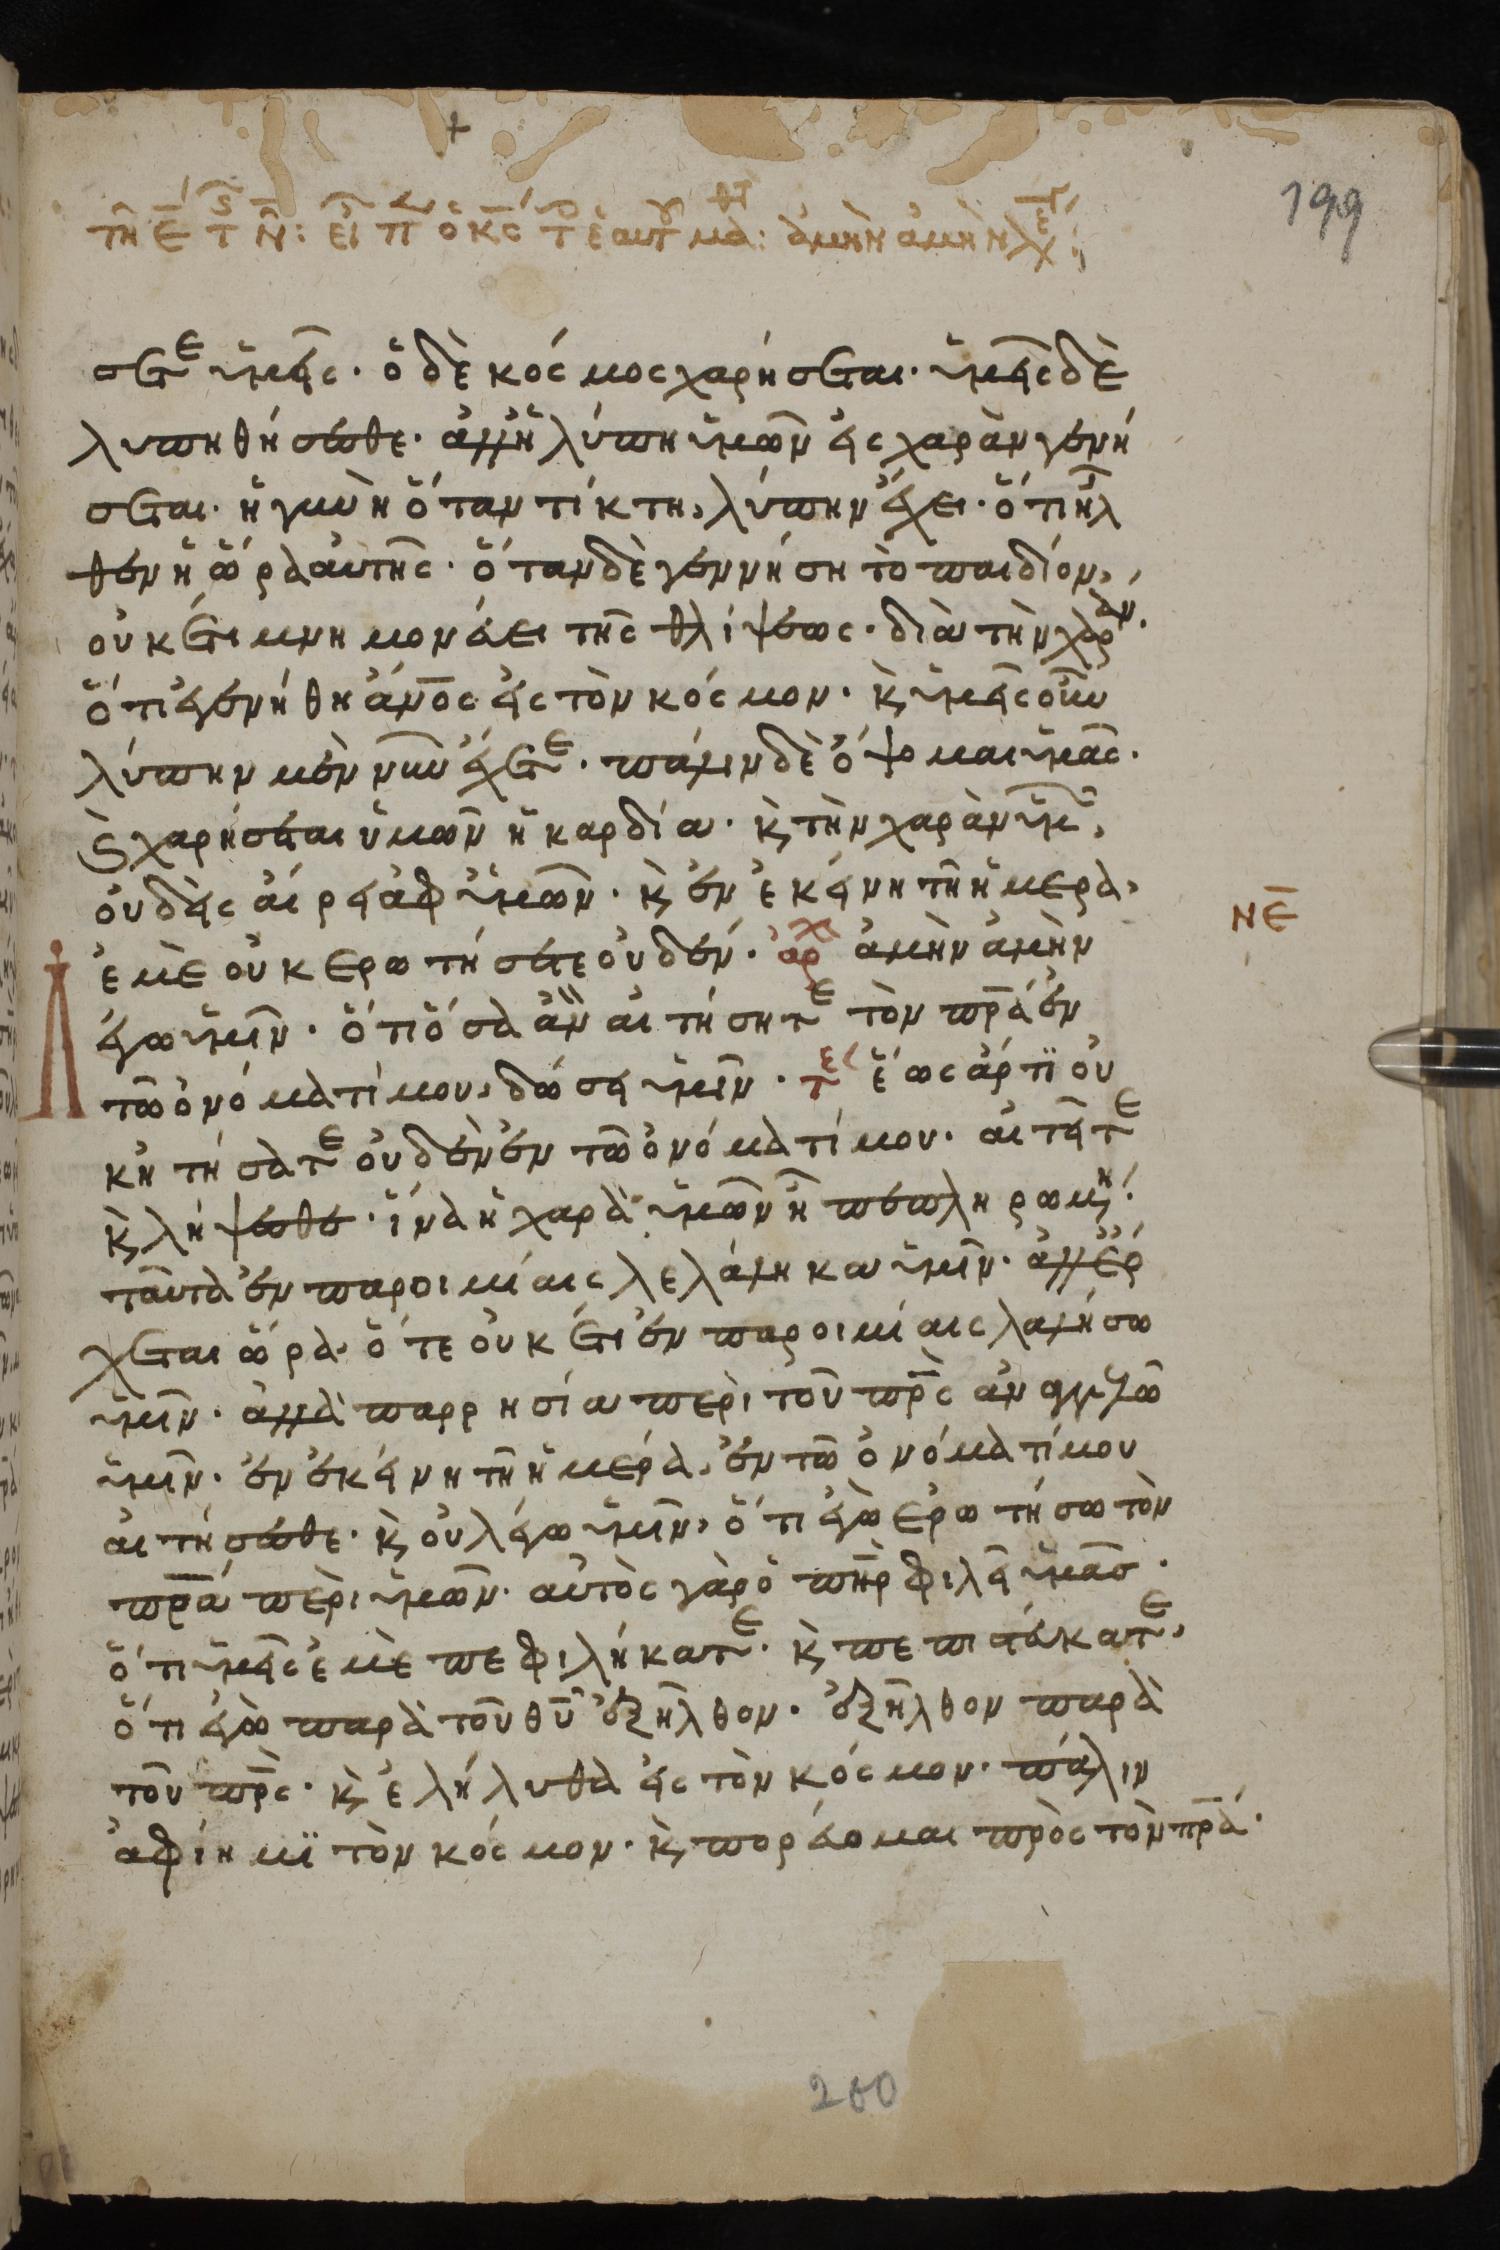 199
τῆ ε τ ν: εἶπ ὁ κς τ ἑαυτ μα: ἀμὴν ἀμὴν λέγ
σετε ὑμεῖς· ὁ δὲ κόσμος χαρήσεται· ὑμεῖς δὲ
λυπηθήσεσθε· ἀλλ ἡ λύπη ὑμῶν εἰς χαρὰν γενή
σεται· ἡ γυνὴ ὅταν τίκτη, λύπην ἔχει· ὅτι ἦλ
θεν ἡ ὥρα αὐτῆς· ὅταν δὲ γεννήση τὸ παιδίον,
οὐκέτι μνημονεύει τῆς θλίψεως· διὰ τὴν χαράν·
ὅτι ἐγενήθη ἄνος εἰς τὸν κόσμον· κ̀ ὑμεῖς οὖν
λύπην μὲν νῦν ἔχετε· πάλιν δὲ ὄψομαι ὑμᾶς·
κ̀ χαρήσεται ὑμῶν ἡ καρδία· κ̀ τὴν χαρὰν ὑμ,
οὐδεὶς αἴρει ἀφ ὑμῶν· κ̀ ἐν ἐκείνη τῆ ἡμερα,
ἐμὲ οὐκ ερωτήσετε οὐδέν· αρχ ἀμὴν ἀμὴν
νε
λέγω ὑμῖν· ὅτι ὅσα ἂν αἰτήσητε τὸν πρα ἐν
τῶ ὀνόματί μου, δώσει ὑμῖν· τε ἕως ἄρτϊ οὐ
κ ἠτήσατε οὐδὲν ἐν τῶ ὀνόματί μου· αἰτεῖτε
κ̀ λήψεσθε· ἵνα ἡ χαρὰ ὑμῶν ἦ πεπληρωμένη·
ταῦτα ἐν παροιμίαις λελάληκα ὑμῖν· ἀλλ ἔρ
χεται ὥρα· ὅτε οὐκέτι ἐν παροιμίαις λαλήσω
ὑμῖν· ἀλλὰ παρρησία περὶ τοῦ πρς ἀναγγελῶ
ὑμῖν· ἐν ἐκείνη τῆ ἡμερα, ἐν τῶ ὀνόματί μου
αἰτήσεσθε· κ̀ οὐ λέγω ὑμῖν, ὅτι ἐγὼ ἐρωτήσω τὸν
πρα περὶ ὑμῶν· αὐτὸς γὰρ ὁ πηρ φιλεῖ ὑμᾶσ·
ὅτι ὑμεῖς ἐμὲ πεφιλήκατε· κ̀ πεπιστεύκατε,
ὅτι ἐγὼ παρὰ τοῦ θυ ἐξῆλθον· ἐξῆλθον παρὰ
τοῦ πρς· κ̀ ἐλήλυθα εἰς τὸν κόσμον· πάλιν
ἀφίημϊ τὸν κόσμον· κ̀ πορεύομαι πρὸς τὸν πρα·
200